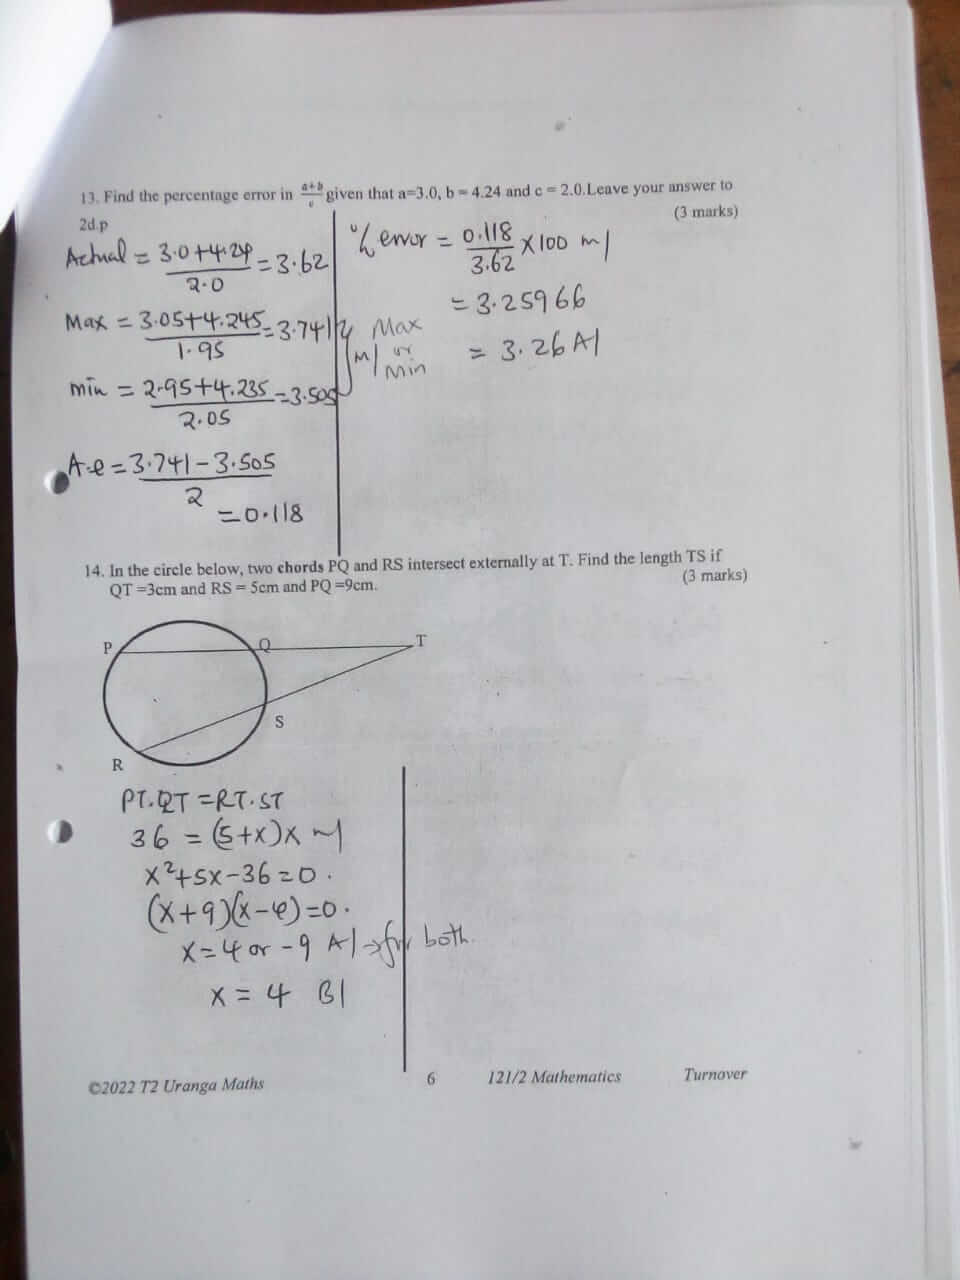 13. Find the percentage error in a+b/c given that a=3.0, b = 4.24 and c = 2.0.Leave your answer to
2d.p
(3 marks)
Actual = 3.0+4.24/2.0 = 3.62
Max = 3.05+4.245/1.95 = 3.741
min = 2.95+4.235/2.05 = 3.505
M1 Max
or
Min
A.e = 3.741-3.505/2
= 0.118
% error = 0.118/3.62 × 100 M1
= 3.25966
= 3.26 A1
14. In the circle below, two chords PQ and RS intersect externally at T. Find the length TS if
QT =3cm and RS = 5cm and PQ =9cm.
(3 marks)
P
Q
T
S
R
PT.QT = RT.ST
36 = (5+x)x M1
x²+5x-36=0.
(x+9)(x-4)=0.
x=4 or -9 A1 → for both.
x = 4 B1
©2022 T2 Uranga Maths
6
121/2 Mathematics
Turnover